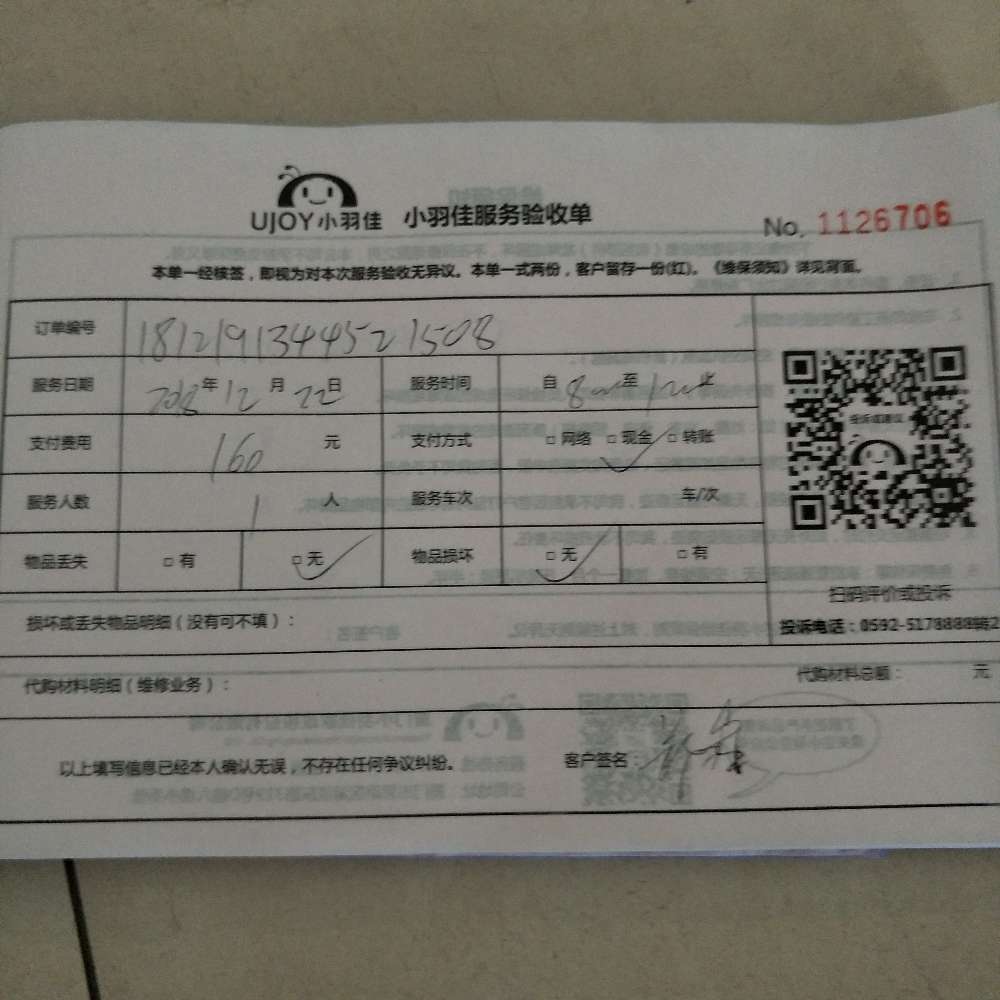 UJOY小羽佳 小羽佳服务验收单
No. 1126706
本单一经核签，即视为对本次服务验收无异议。本单一式两份，客户留存一份(红)。《维保须知》详见背面。
订单编号 181219134452 1508
服务日期 2018年12月22日 服务时间 自8:00至12:00止
支付费用 160 元 支付方式 □网络 □现金 □转账
服务人数 1 人 服务车次 车/次
物品丢失 □有 □无 物品损坏 □无 □有
投诉或建议
扫码评价或投诉
损坏或丢失物品明细（没有可不填）：
投诉电话：0592-5178888转2
代购材料明细（维修业务）： 代购材料总额： 元
以上填写信息已经本人确认无误，不存在任何争议纠纷。 客户签名：